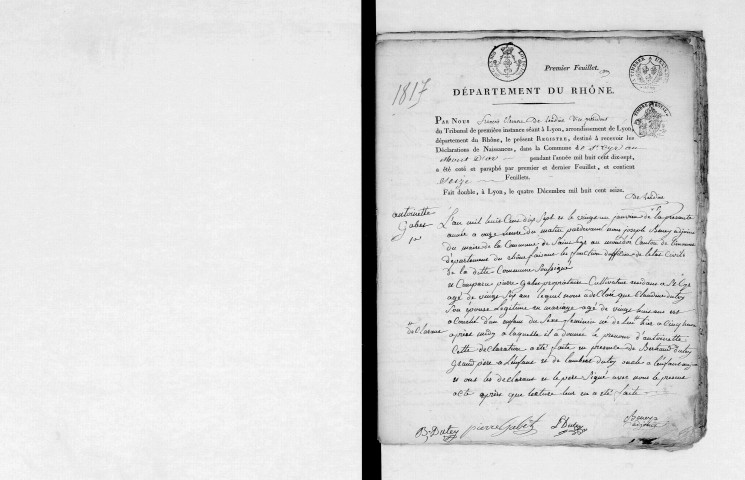 Premier Feuillet.
1817
DÉPARTEMENT DU RHÔNE.
PAR NOUS
du Tribunal de première instance séant à Lyon, arrondissement de Lyon,
département du Rhône, le présent REGISTRE, destiné à recevoir les
Déclarations de Naissances, dans la Commune de St Cyr au
Mont D'or pendant l'année mil huit cent dix-sept,
a été coté et paraphé par premier et dernier Feuillet, et contient
Seize Feuillets.
Fait double, à Lyon, le quatre Décembre mil huit cent seize.
antoinette
Gabet
1er
L'an mil huit Cent dix Sept et le vingt un janvier de la presente
année a onze heure du matin pardevant nous joseph
du maire de la Commune de Saint Cyr au mont dor Canton de limonest
departement du rhône faisant les fonction d'officier de letat Civile
de la ditte Commune Soussigné
est Comparu pierre gabet propriétaire Cultivateur residant a St Cyr
agé de vingt Six ans lequel nous a déclaré que Claudine dutey
Son épouse Legitime en mariage agé de vingt huit ans est
accouché d'un enfant du Sexe feminin né de hier a Cinq heure
après midy a laquelle il a donné le prenom d'antoinette
Cette declaration a été faite en presence de Bertrand Dutey
Grand père a l'enfant et de lambert dutey oncle a l'enfant
et ont les declarants et le père Signé avec nous le present
acte après que lecture leur en a été faite
B. Dutey pierre Gabet L Dutey